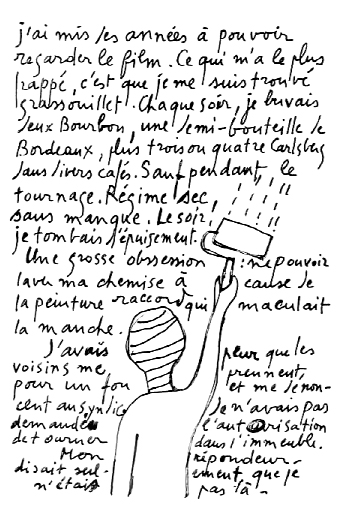 j'ai mis des années à pouvoir
regarder le film. Ce qui m'a le plus
frappé, c'est que je me suis trouvé
grassouillet. Chaque soir, je buvais
deux Bourbon, une demi-bouteille de
Bordeaux, plus trois ou quatre Carlsberg
dans divers cafés. Sauf pendant le
tournage. Régime sec,
sans manque. Le soir,
je tombais d'épuisement.
Une grosse obsession : ne pouvoir
laver ma chemise à cause de
la peinture raccord qui maculait
la manche.
J'avais peur que les
voisins me prennent
pour un fou et me dénon-
cent au syndic Je n'avais pas
demandé l'autorisation
de tourner dans l'immeuble.
Mon répondeur
disait seul- ement que je
n'étais pas là -